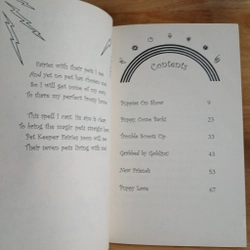 Fairies with their pets I see
And yet no pet has chosen me
So I will get some of my own
To share my perfect frosty home
This spell I cast. Its aim is clear:
To bring the magic pets straight here
Pet Keeper Fairies soon will see
Their seven pets living with me
Contents
Puppies On Show
9
Puppy, Come Back!
23
Trouble Bounds Up
33
Grabbed by Goblins!
45
New Friends
55
Puppy Love
67